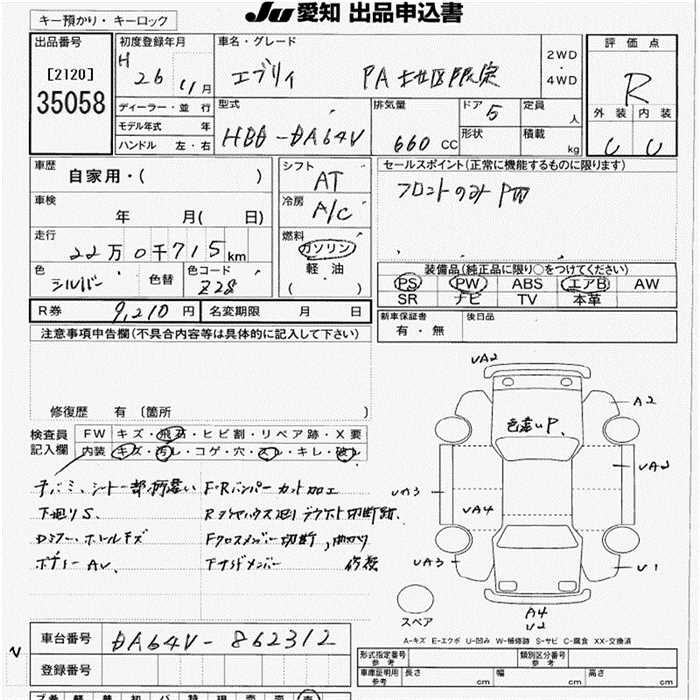 キー預かり・キーロック
JU愛知 出品申込書
出品番号
[2120]
35058
初度登録年月
H 26 年 11月
ディーラー・並 行
モデル年式 年
ハンドル 左・右
車名・グレード
エブリィ PA 地区限定
2WD
・
4WD
型式
HBD-DA64V
排気量
660 CC
ドア 5
形状
定員
人
積載
kg
評 価 点
R
外 装 内 装
U U
車歴
自家用・( )
車検
年 月( 日)
走行
22万0千715km
色
シルバー
色替
色コード
Z28
シフト
AT
冷房
A/C
燃料
ガソリン
・
軽 油
( )
セールスポイント(正常に機能するものに限ります)
フロントのみPW
装備品(純正品に限り○をつけてください)
PS PW ABS エアB AW
SR ナビ TV 本革
R券 9,210 円
名変期限 月 日
新車保証書
有 ・ 無
後日品
注意事項申告欄(不具合内容等は具体的に記入して下さい)
修復歴 有 〔箇所 〕
検査員
記入欄
FW キズ・飛石・ヒビ割・リペア跡・X要
内装 キズ・汚レ・コゲ・穴・スレ・キレ・破レ
シート一部柄違い F・Rバンパーカット加工
下廻りS.
Fクロスメンバー切断,曲がり
ボデーAV.
VA2
A2
色違いP.
VA2
VA3
VA4
VA3
V1
A4
V2
スペア
A-キズ E-エクボ U-凹み W-補修跡 S-サビ C-腐食 XX-交換済
車台番号 DA64V-862312
登録番号
型式指定番号
参 考
類別区分番号
参 考
車庫証明用
参 考
長さ cm 幅 cm 高さ cm